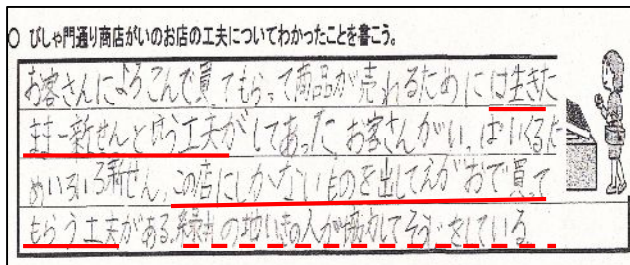 ○ びしゃ門通り商店がいのお店の工夫についてわかったことを書こう。
お客さんによろこんで買てもらって商品が売れるためには生きた
まま一新せんと 工夫がしてあった。お客さんがいっぱいくるた
めいろいろ新せん、この店にしかないものを出してえがおで買って
もらう工夫がある。 の地いきの人が協力してそうじをしている。